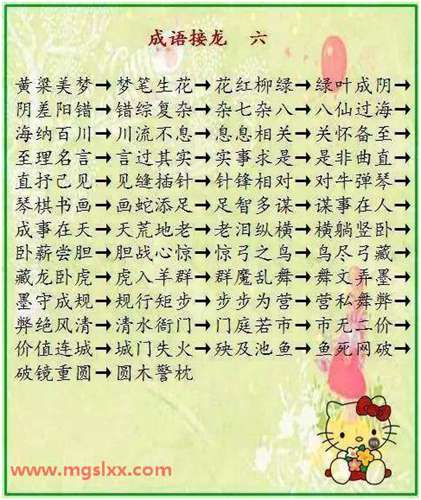 成语接龙 六
黄粱美梦→梦笔生花→花红柳绿→绿叶成阴→
阴差阳错→错综复杂→杂七杂八→八仙过海→
海纳百川→川流不息→息息相关→关怀备至→
至理名言→言过其实→实事求是→是非曲直→
直抒己见→见缝插针→针锋相对→对牛弹琴→
琴棋书画→画蛇添足→足智多谋→谋事在人→
成事在天→天荒地老→老泪纵横→横躺竖卧→
卧薪尝胆→胆战心惊→惊弓之鸟→鸟尽弓藏→
藏龙卧虎→虎入羊群→群魔乱舞→舞文弄墨→
墨守成规→规行矩步→步步为营→营私舞弊→
弊绝风清→清水衙门→门庭若市→市无二价→
价值连城→城门失火→殃及池鱼→鱼死网破→
破镜重圆→圆木警枕
www.mgslxx.com